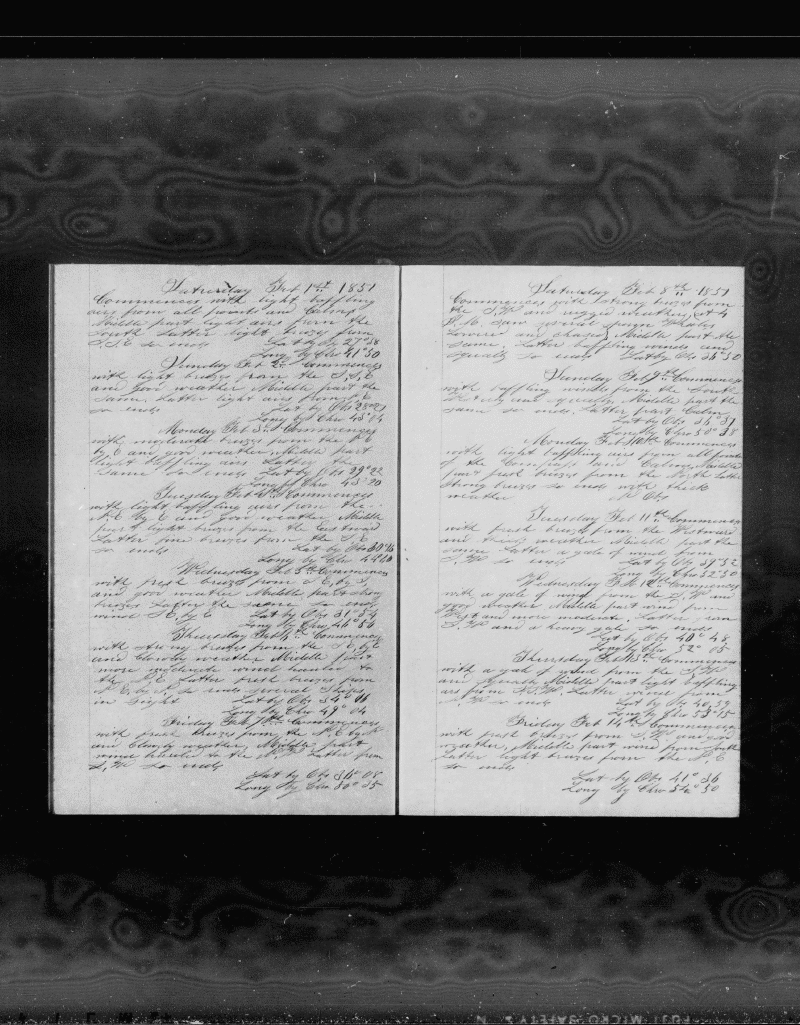 Saturday Feb 1st 1851
Commences with light baffling
airs from all points and Calms
Middle part light airs from the
South Latter light breezes from
S.S.E so ends Lat by Obs 27°58
Long by Chro 41°50
Sunday Feb 2nd Commences
with light breezes from the S.S.E
and good weather Middle part the
same. Latter light airs from
so ends Lat by Obs
Long by Chro 43°04
Monday Feb 3rd Commences
with moderate breezes from the
by E and good weather Middle part
light baffling airs Latter the
same So ends Lat by Obs 29°22
Long by Chro 43°20
Tuesday Feb 4th Commences
with light baffling airs from the
N.E by E and good weather Middle
part light breezes from the Eastward
Latter fine breezes from the S.E
so ends Lat by Obs
Long by Chro
Wednesday Feb 5th Commences
with fresh breezes from S.E by S
and good weather Middle part strong
breezes Latter the same So ends
wind S.E. by E Lat by Obs 31°54
Long by Chro 46°54
Thursday Feb 6th Commences
with strong breezes from the S.E by E
and Cloudy weather Middle part
more moderate wind hauled to
the Latter fresh breezes from
so ends several Ships
in Sight Lat by Obs 34°
Long by Chro 49°04
Friday Feb 7th Commences
with fresh breezes from the
and Cloudy weather, Middle part
wind hauled to the Latter from
S.W so ends
Lat by Obs 36°08
Long by Chro 50°35
Saturday Feb 8th 1851
Commences with strong breezes from
the S.W and rugged weather, at 4
P.M. saw several sperm Whales
Lowered and chased, Middle part the
same, Latter baffling winds and
squalls so ends Lat by Obs 36°50
Sunday Feb 9th Commences
with baffling winds from the South
squally, Middle part the
same so ends, Latter part Calm
Lat by Obs 36°51
Long by Chro 50°38
Monday Feb 10th Commences
with light baffling airs from all points
of the Compass and Calms, Middle
part fresh breezes from the North Latter
strong breezes so ends with thick
weather No Obs
Tuesday Feb 11th Commences
with fresh breezes from the Westward
and thick weather Middle part the
same Latter a gale of wind from
S.W so ends Lat by Obs 39°52
Long by Chro 52°50
Wednesday Feb 12th Commences
with a gale of wind from the S.W and
good weather Middle part wind from
West and more moderate, Latter from
S.W and a heavy gale so ends
Lat by Obs 40°48
Long by Chro 52°05
Thursday Feb 13th Commences
with a gale of wind from the S.W
and squally Middle part light baffling
airs from S.W. Latter wind from
so ends Lat by Obs 40 59
Long by Chro 53°15
Friday Feb 14th Commences
with fresh breezes from S.W and good
weather, Middle part wind from South
Latter light breezes from the S.E
so ends
Lat by Obs 41°36
Long by Chro 54°50
FUJI MICRO SAFETY